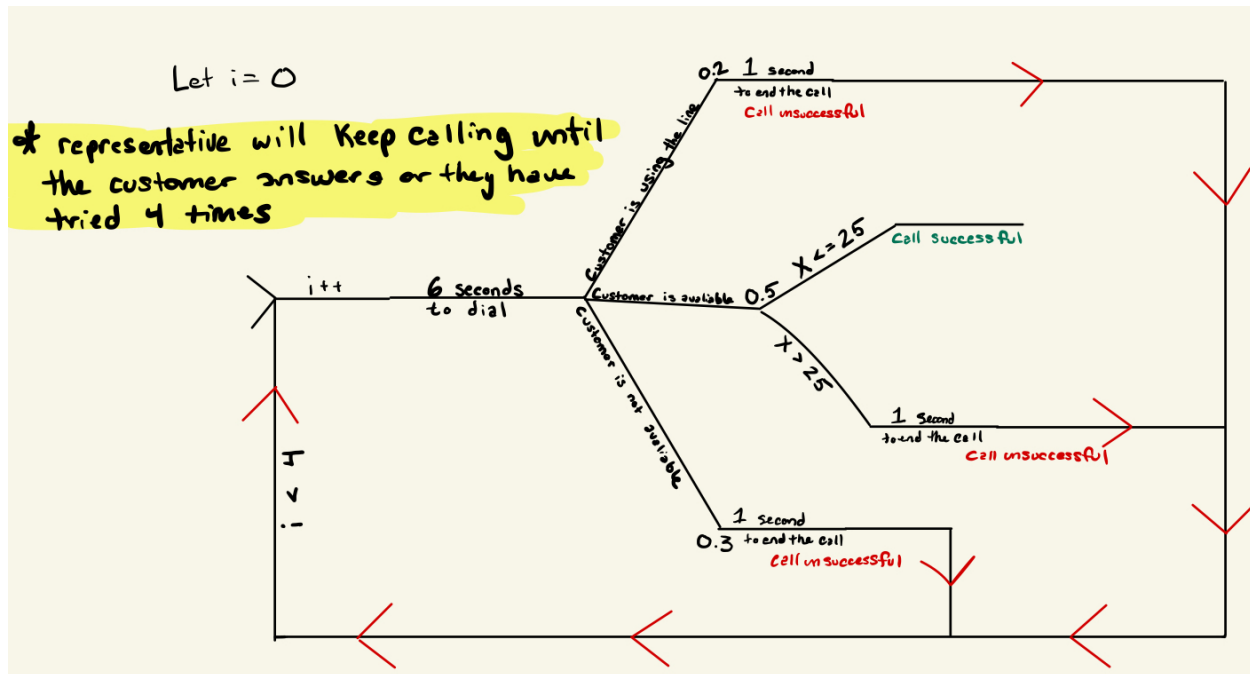 Let i = 0
* representative will keep calling until
the customer answers or they have
tried 4 times
i++
6 seconds
to dial
Customer is using the line
0.2
1 second
to end the call
Call unsuccessful
Customer is avaliable
0.5
X <= 25
Call successful
X > 25
1 second
to end the call
Call unsuccessful
Customer is not avaliable
0.3
1 second
to end the call
Call unsuccessful
i < 4